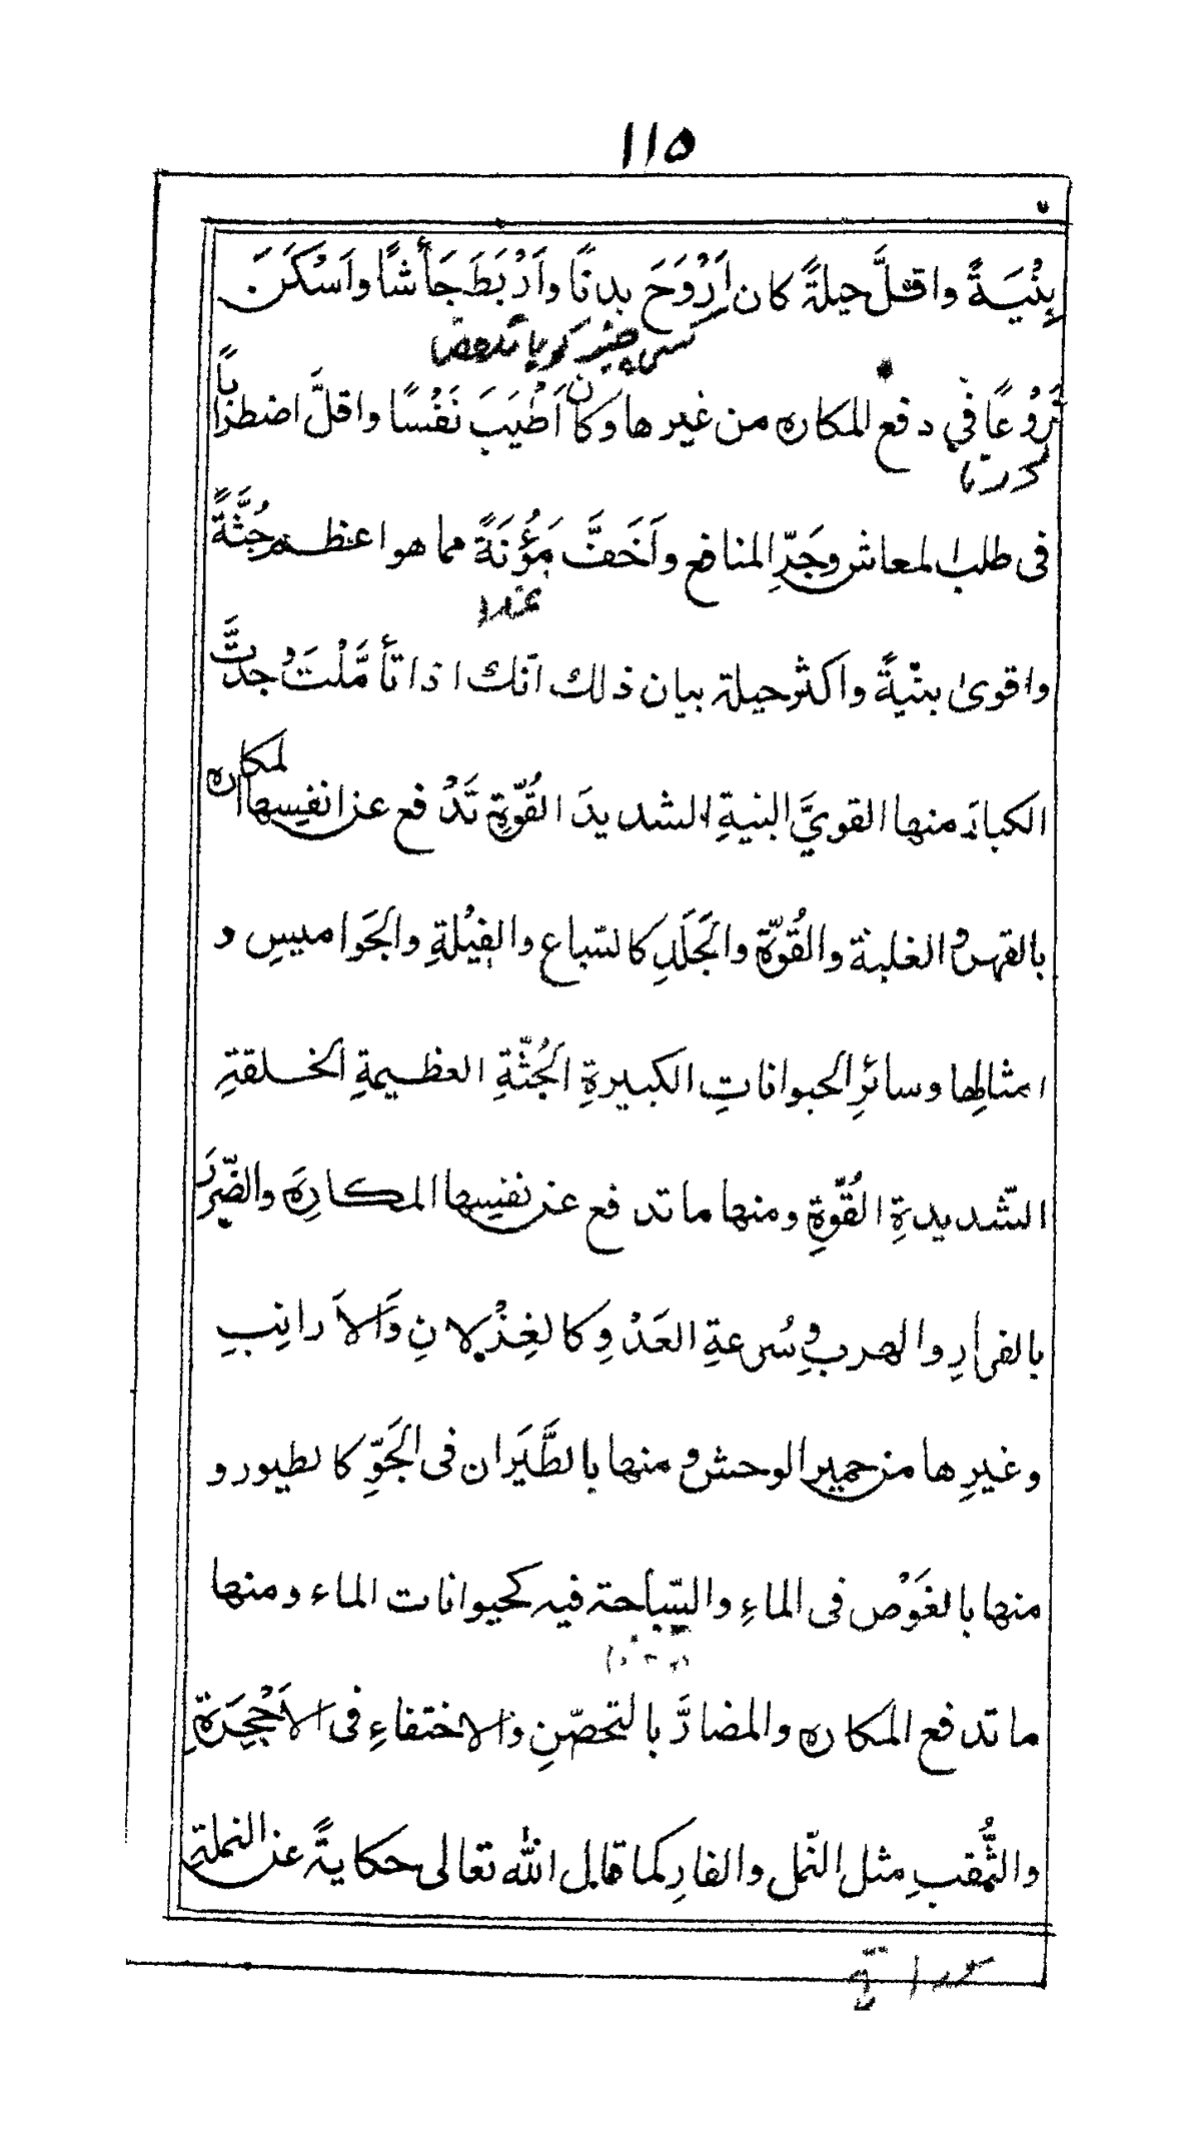 ١١٥
بِنْيَةً واقلَّ حيلةً كان اَرْوَحَ بدنًا واَرْبَطَ جَأشًا واَسْكَنَ
رُوُعًا في دفع المكاره من غيرها وكان اَطْيَبَ نَفْسًا واقلَّ اضطرابًا
فى طلب المعاش وجَرِّ المنافع واَخَفَّ مَؤُنَةً مما هو اعظم جُثَّةً
واقوىٰ بنْيةً واكثر حيلة بيان ذلك انّك اذا تأمَّلْتَ وُجدتَّ
الكبارَ منها القويَّ البنيةِ الشديدَ القُوّةِ تَدْفع عن انفسِها المكاره
بالقهر و الغلبة والقُوّة والجَلَدِ كالسّباع والفِيْلةِ والجَواميسِ و
امثالِها وسائرِ الحيواناتِ الكبيرةِ الجُثّةِ العظيمةِ الخلقةِ
الشّديدةِ القُوّةِ ومنها ما تدفع عن نفسِها المكارِهَ والضّررَ
بالفرارِ والهرب و سُرعةِ العَدْوِ كالغِزْلانِ وَالاَرانِبِ
وغيرِها من حمير الوحش و منها بالطَّيَران فى الجَوِّ كالطيور و
منها بالغَوْص فى الماءِ والسّباحة فيه كحيوانات الماء ومنها
ما تدفع المكاره والمضارَّ بالتحصّنِ والاختفاءِ فى الاَجْحِرَةِ
والثُّقبِ مثل النّمل والفارِ كما قال اللّٰه تعالى حكايةً عن النملةِ